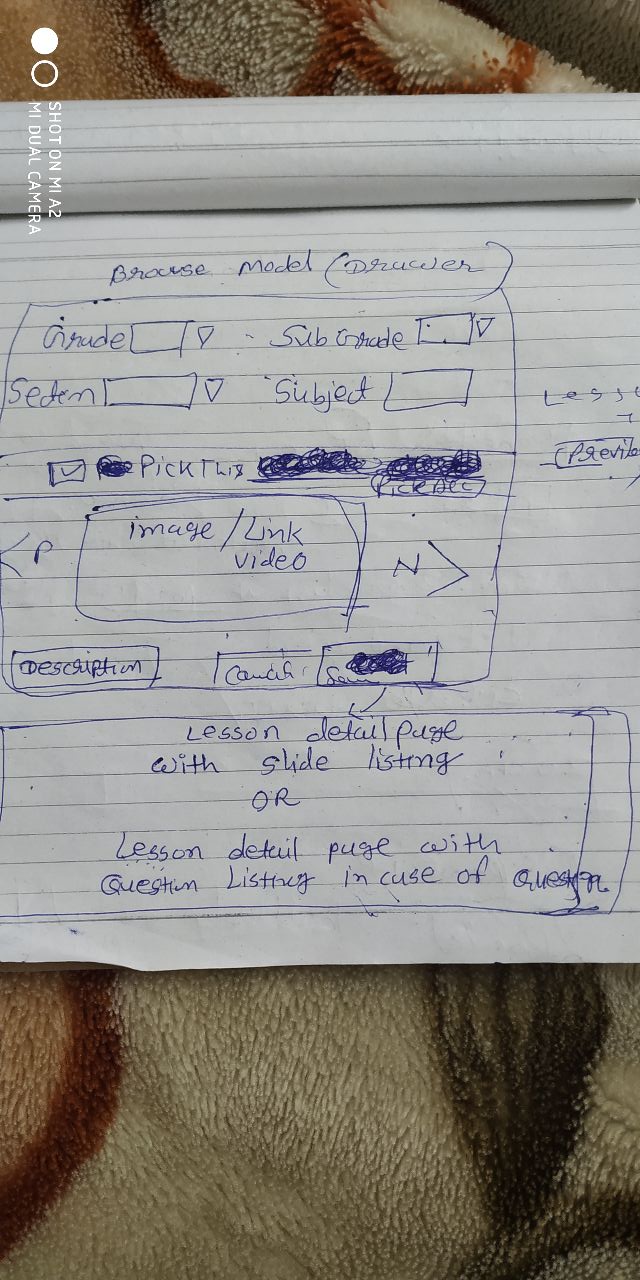 SHOT ON MI A2
MI DUAL CAMERA
Browse Model (Drawer)
Grade Sub Grade
Subject
Pick This
Pick All
image / Link
video
< P N >
Description Cancel
Lesson detail page
with slide listing
OR
Lesson detail page with
Question Listing in case of Question